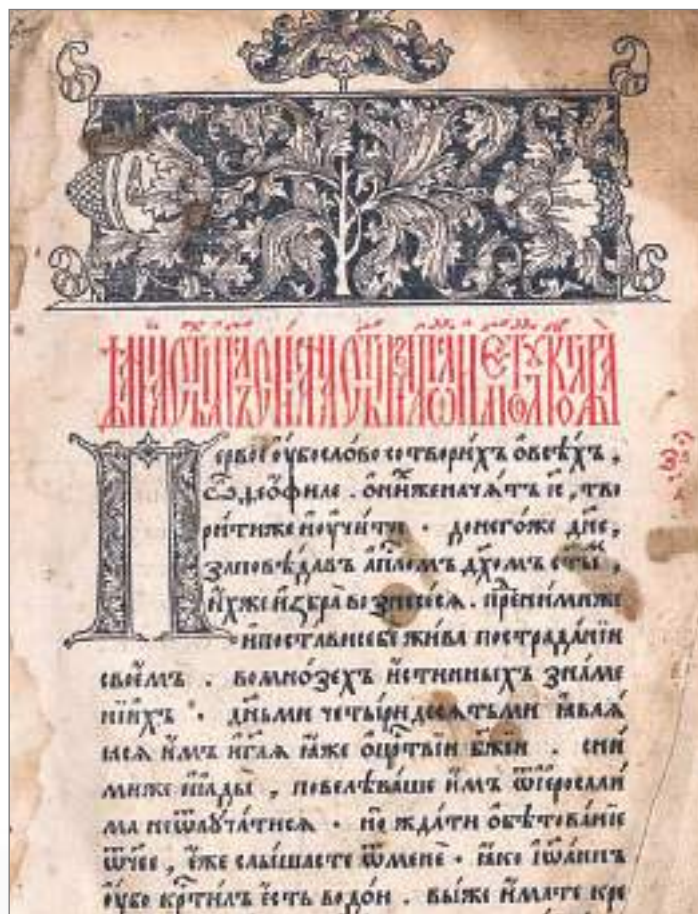 Первое оубо слово сотворихъ ѡ всѣхъ,
ѽ Ѳеѡфиле. ѡ нихже начатъ і҃с, тво
рити же и оучити. до него́же дн҃е,
заповѣдавъ ап҃лѡмъ дх҃омъ ст҃ы́м,
и́хже и҆збра̀ вознесеся. пре́ними же
и постави себе жива по страда́нїи
свое́мъ. во мно́зехъ и́стинныхъ зна́ме
нїихъ. дн҃ьми четы́ридесятьми ꙗвлѧ́
ꙗся и́мъ и гл҃ѧ ꙗ́же ѡ црт҃вїи бж҃їи. сни́
миже и ꙗды̀, повелѣва́ше и́мъ ѿ іеросали́
ма не ѿлуча́тися. но жда́ти ѡбѣтова́нїе
ѿчее, е́же слы́шасте ѿ менѐ. ꙗ́ко іѡа́ннъ
оу́бо кр҃тилъ е́сть водо́ю. вы́же и́мате кре